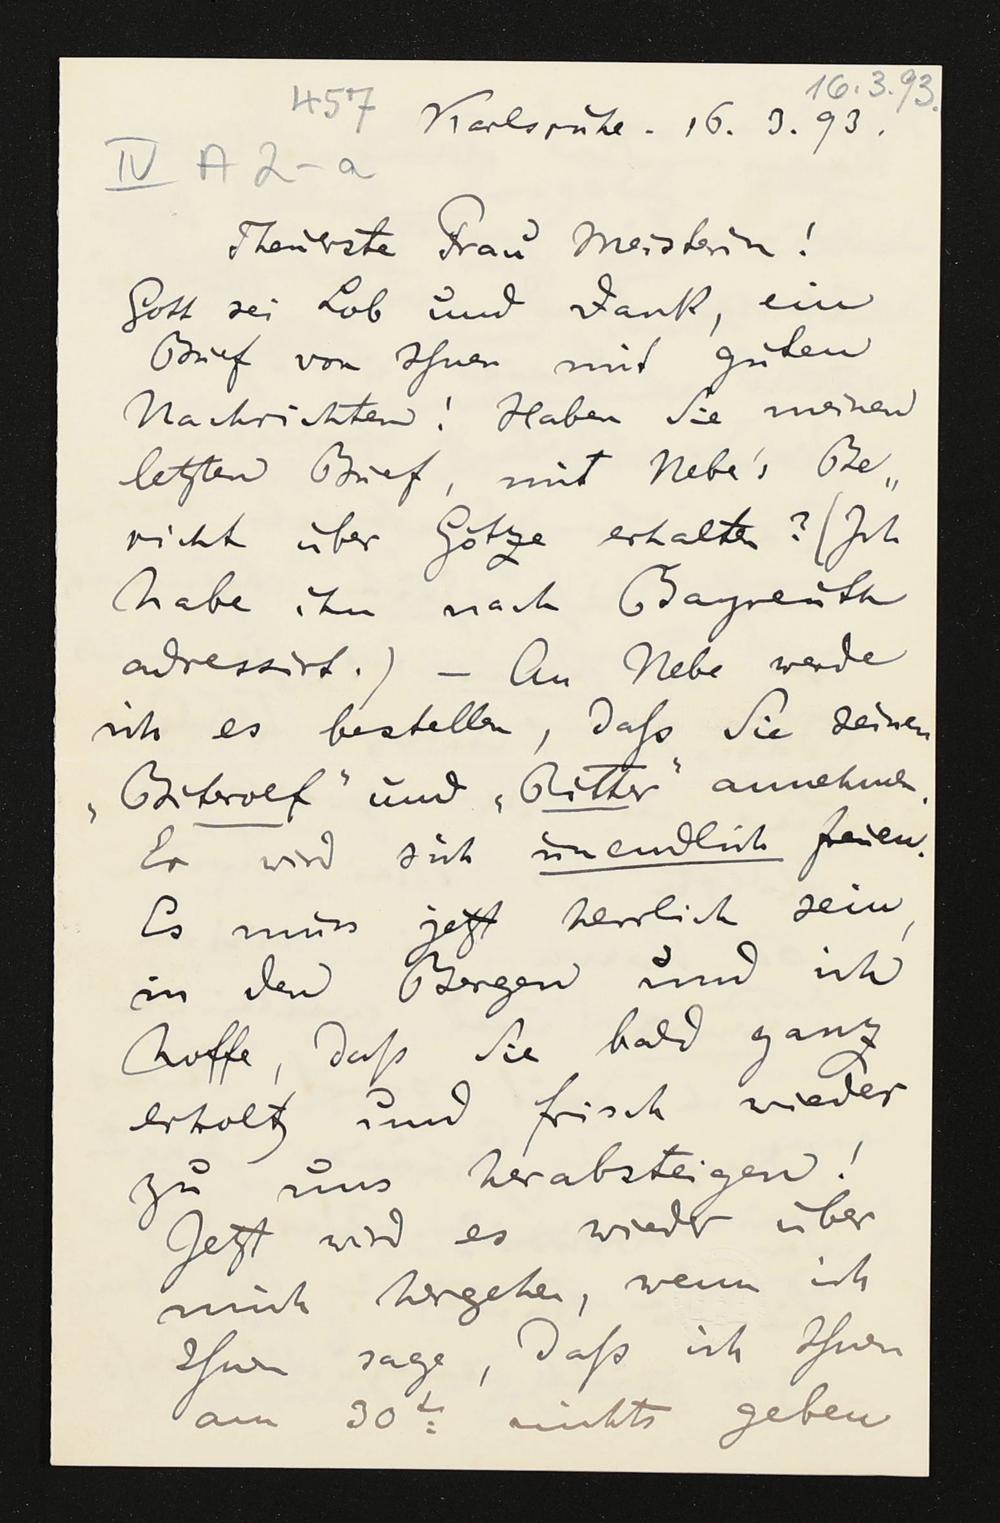 16.3.93.
457
Karlsruhe. 16. 3. 93.
IV A 2-a
Theuerste Frau Meisterin!
Gott sei Lob und Dank, ein
Brief von Ihnen mit guten
Nachrichten! Haben Sie meinen
letzten Brief, mit Nebe's Be„
richt über Götze erhalten? (Ich
habe ihn nach Bayreuth
adressirt.) — An Nebe werde
ich es bestellen, daß Sie seinen
„Biterolf" und „Ritter" annehmen.
Er wird sich unendlich freuen.
Es muss jetzt herrlich sein,
in den Bergen und ich
hoffe, daß Sie bald ganz
erholt und frisch wieder
zu uns herabsteigen!
Jetzt wird es wieder über
mich hergehen, wenn ich
Ihnen sage, daß ich Ihnen
am 30t: nichts geben